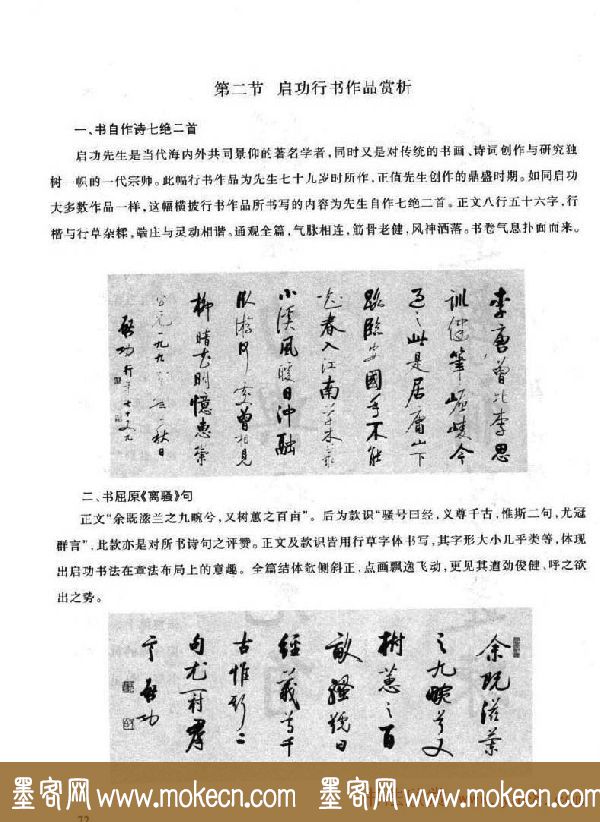 第二节 启功行书作品赏析
一、书自作诗七绝二首
启功先生是当代海内外共同景仰的著名学者,同时又是对传统的书画、诗词创作与研究独
树一帜的一代宗师。此幅行书作品为先生七十九岁时所作,正值先生创作的鼎盛时期。如同启功
大多数作品一样,这幅横披行书作品所书写的内容为先生自作七绝二首。正文八行五十六字,行
楷与行草杂糅。端庄与灵动相谐。通观全篇,气脉相连,筋骨老健,风神洒落。书卷气息扑面而来。
李唐曾比李思
训健笔崚嶒今
此是居庸山下
路临安国手不能
花春入江南草木
小溪风暖日冲融
卧游何处曾相见
柳暗花明忆惠崇
公元一九九
秋日
启功行年七十又九
二、书屈原《离骚》句
正文“余既滋兰之九畹兮,又树蕙之百亩”。后为款识“骚号曰经,义尊千古,惟斯二句,尤冠
群言”,此款亦是对所书诗句之评赞。正文及款识皆用行草字体书写,其字形大小几乎类等,体现
出启功书法在章法布局上的意趣。全篇结体欹侧斜正,点画飘逸飞动,更见其遒劲俊健,呼之欲
出之势。
余既滋兰
之九畹兮又
树蕙之百
亩骚号曰
经义尊千
古惟斯二
句尤冠群
言启功
墨客网 www.mokecn.com 墨客网 www.mokecn.com
72